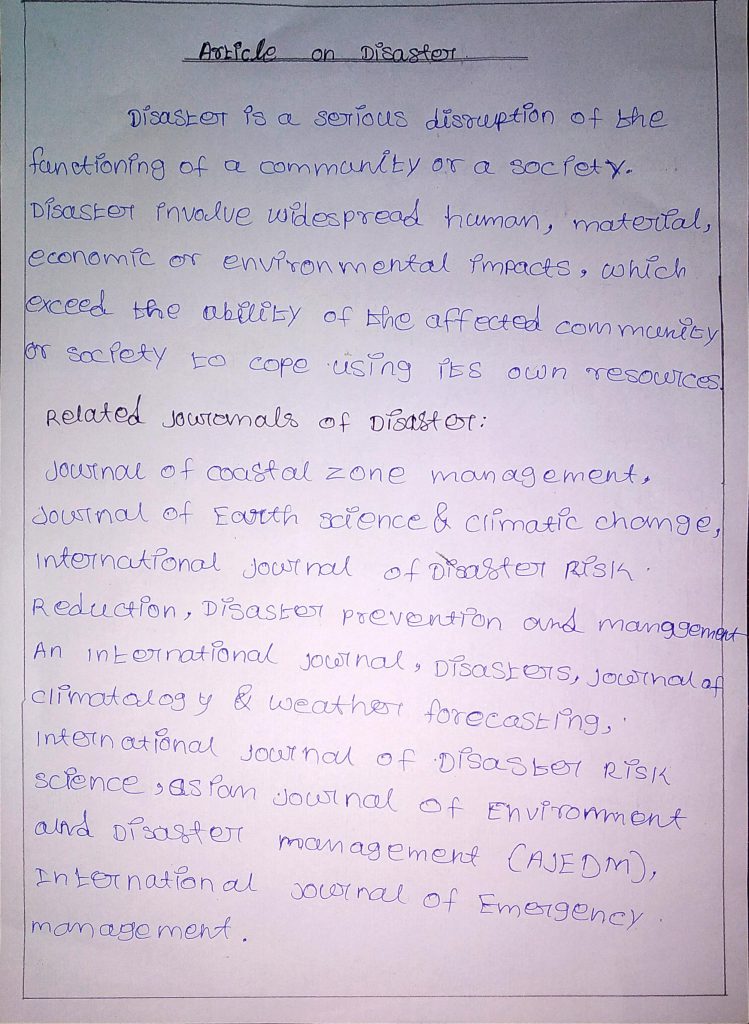 Article on Disaster
Disaster is a serious disruption of the
functioning of a community or a society.
Disaster involve widespread human, material,
economic or environmental impacts, which
exceed the ability of the affected community
or society to cope using its own resources.
Related Journals of Disaster:
Journal of coastal zone management,
Journal of Earth science & climatic change,
International Journal of Disaster Risk
Reduction, Disaster prevention and management
An international Journal, Disasters, Journal of
climatology & weather forecasting,
International Journal of Disaster Risk
science, asian Journal of Environment
and Disaster management (AJEDM),
International Journal of Emergency
management.